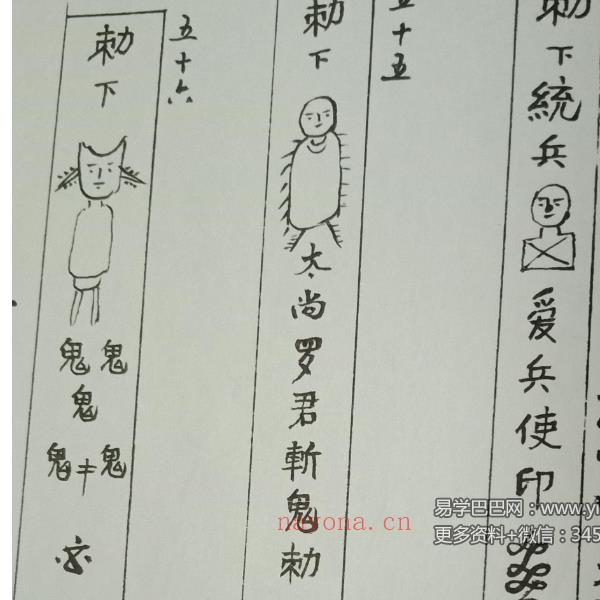 勅下統兵
爱兵使印
五十五
勅下
太尚罗君斬鬼勅
五十六
勅下
鬼鬼
鬼
鬼鬼
nayona.cn
易学巴巴网：www.yi
更多资料+微信：345